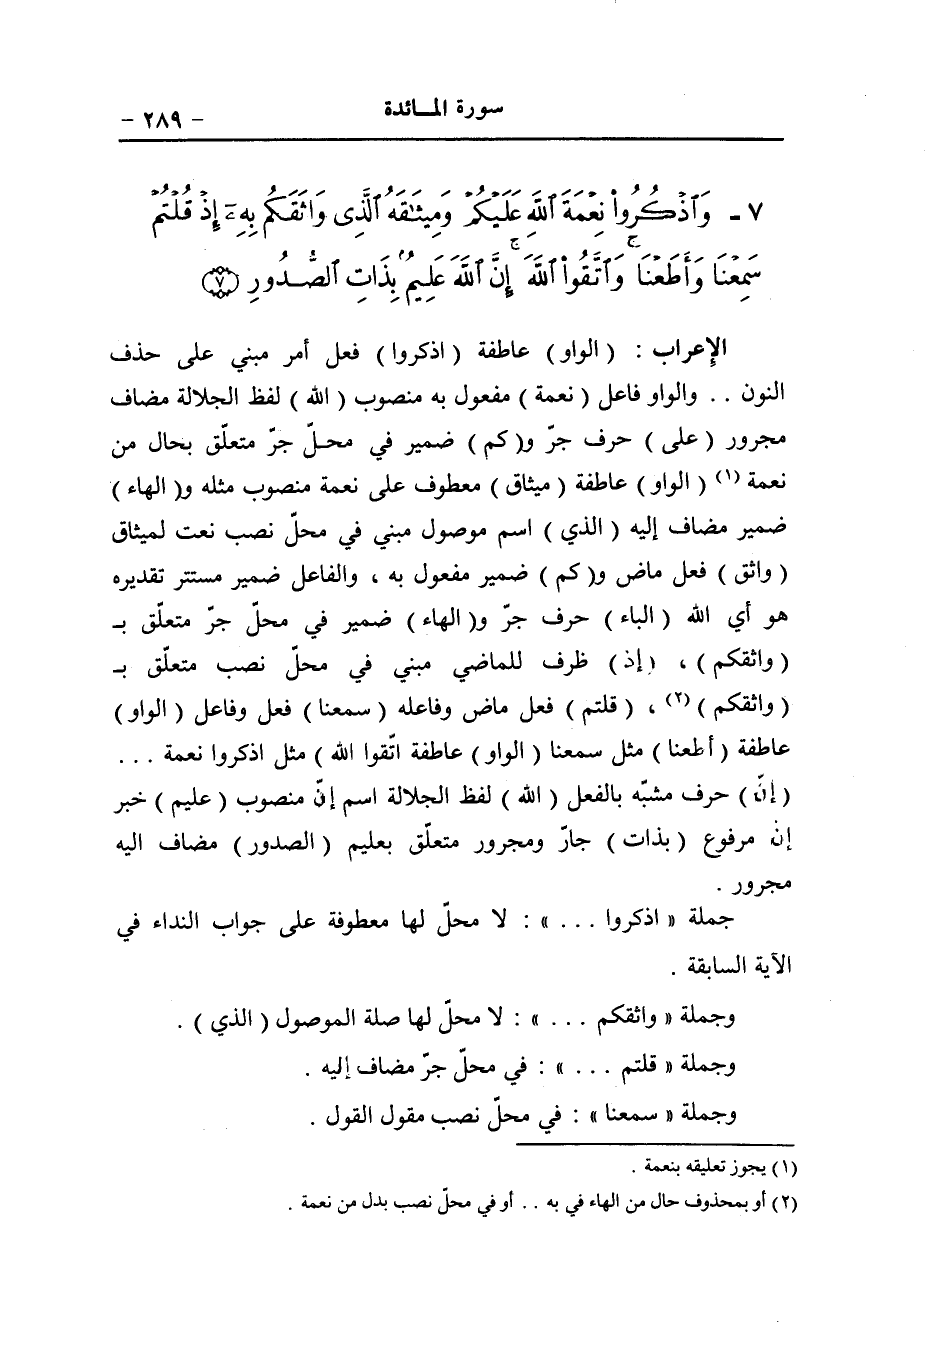 سورة المائدة
- ٢٨٩ -
٧ - وَٱذْكُرُوا۟ نِعْمَةَ ٱللَّهِ عَلَيْكُمْ وَمِيثَـٰقَهُ ٱلَّذِى وَاثَقَكُم بِهِۦٓ إِذْ قُلْتُمْ
سَمِعْنَا وَأَطَعْنَا ۖ وَٱتَّقُوا۟ ٱللَّهَ ۚ إِنَّ ٱللَّهَ عَلِيمٌۢ بِذَاتِ ٱلصُّدُورِ (٧)
الإعراب : (الواو) عاطفة (اذكروا) فعل أمر مبني على حذف
النون . . والواو فاعل (نعمة) مفعول به منصوب (الله) لفظ الجلالة مضاف
مجرور (على) حرف جرّ و(كم) ضمير في محلّ جرّ متعلّق بحال من
نعمة (١) (الواو) عاطفة (ميثاق) معطوف على نعمة منصوب مثله و(الهاء)
ضمير مضاف إليه (الذي) اسم موصول مبني في محلّ نصب نعت لميثاق
(واثق) فعل ماض و(كم) ضمير مفعول به ، والفاعل ضمير مستتر تقديره
هو أي الله (الباء) حرف جرّ و(الهاء) ضمير في محلّ جرّ متعلّق بـ
(واثقكم) ، (إذ) ظرف للماضي مبني في محلّ نصب متعلّق بـ
(واثقكم) (٢) ، (قلتم) فعل ماض وفاعله (سمعنا) فعل وفاعل (الواو)
عاطفة (أطعنا) مثل سمعنا (الواو) عاطفة اتّقوا الله) مثل اذكروا نعمة . . .
(إنّ) حرف مشبّه بالفعل (الله) لفظ الجلالة اسم إنّ منصوب (عليم) خبر
إن مرفوع (بذات) جارّ ومجرور متعلّق بعليم (الصدور) مضاف اليه
مجرور .
جملة « اذكروا . . . » : لا محلّ لها معطوفة على جواب النداء في
الآية السابقة .
وجملة « واثقكم . . . » : لا محلّ لها صلة الموصول (الذي) .
وجملة « قلتم . . . » : في محلّ جرّ مضاف إليه .
وجملة « سمعنا » : في محلّ نصب مقول القول .
(١) يجوز تعليقه بنعمة .
(٢) أو بمحذوف حال من الهاء في به . . أو في محلّ نصب بدل من نعمة .